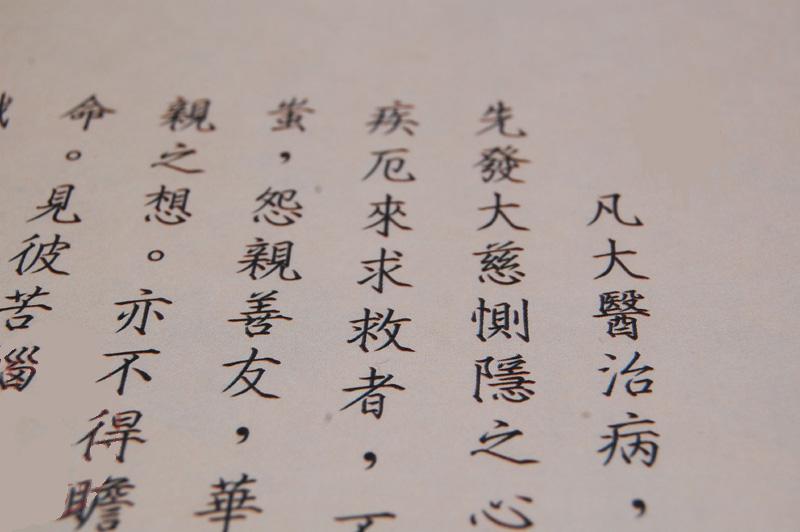 凡大醫治病，
先發大慈惻隱之心
疾厄來求救者，
蚩，怨親善友，華
親之想。亦不得瞻
命。見彼苦惱